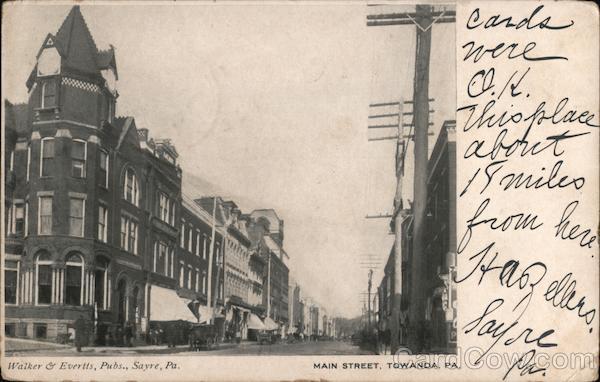 cards
were
O.K.
This place
about
18 miles
from here.
Sayre
Pa.
Walker & Evertts, Pubs., Sayre, Pa.
MAIN STREET, TOWANDA, PA.
CardCow.com